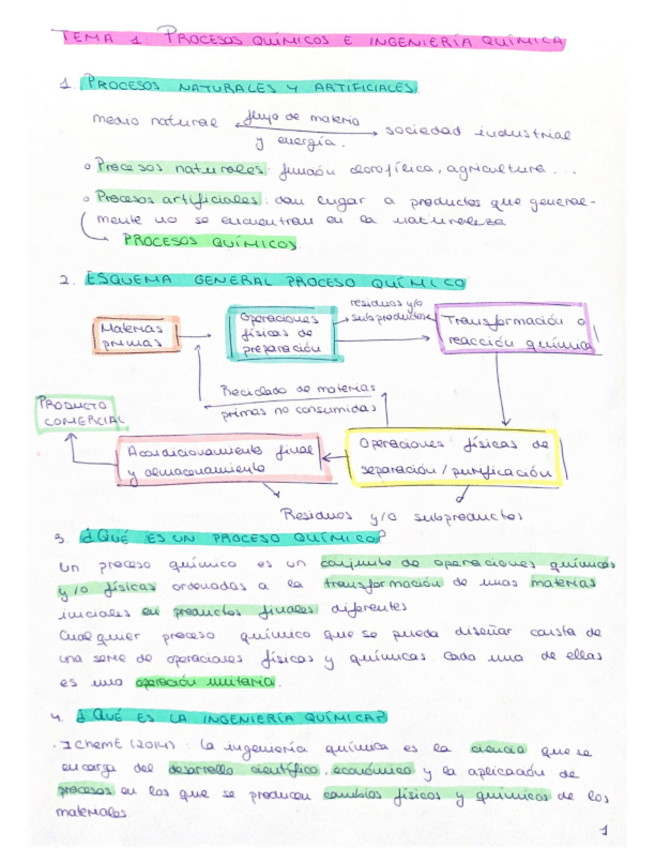 TEMA 1. PROCESOS QUÍMICOS E INGENIERÍA QUÍMICA
1. PROCESOS NATURALES Y ARTIFICIALES
medio natural flujo de materia y energía. sociedad industrial
Procesos naturales: función clorofílica, agricultura...
Procesos artificiales: dan lugar a productos que general-
mente no se encuentran en la naturaleza
PROCESOS QUÍMICOS
2. ESQUEMA GENERAL PROCESO QUÍMICO
Materias
primas
Operaciones
físicas de
preparación
residuos y/o
subproductos
Transformación o
reacción química
Reciclado de materias
primas no consumidas
PRODUCTO
COMERCIAL
Acondicionamiento final
y almacenamiento
Operaciones físicas de
separación/purificación
Residuos y/o subproductos
3. ¿QUÉ ES UN PROCESO QUÍMICO?
Un proceso químico es un conjunto de operaciones químicas
y/o físicas ordenadas a la transformación de unas materias
iniciales en productos finales diferentes
Cualquier proceso químico que se pueda diseñar consta de
una serie de operaciones físicas y químicas Cada una de ellas
es una operación unitaria.
4. ¿QUÉ ES LA INGENIERÍA QUÍMICA?
. IChemE (2014): la ingeniería química es la ciencia que se
encarga del desarrollo científico, económico y la aplicación de
procesos en los que se producen cambios físicos y químicos de los
materiales
1